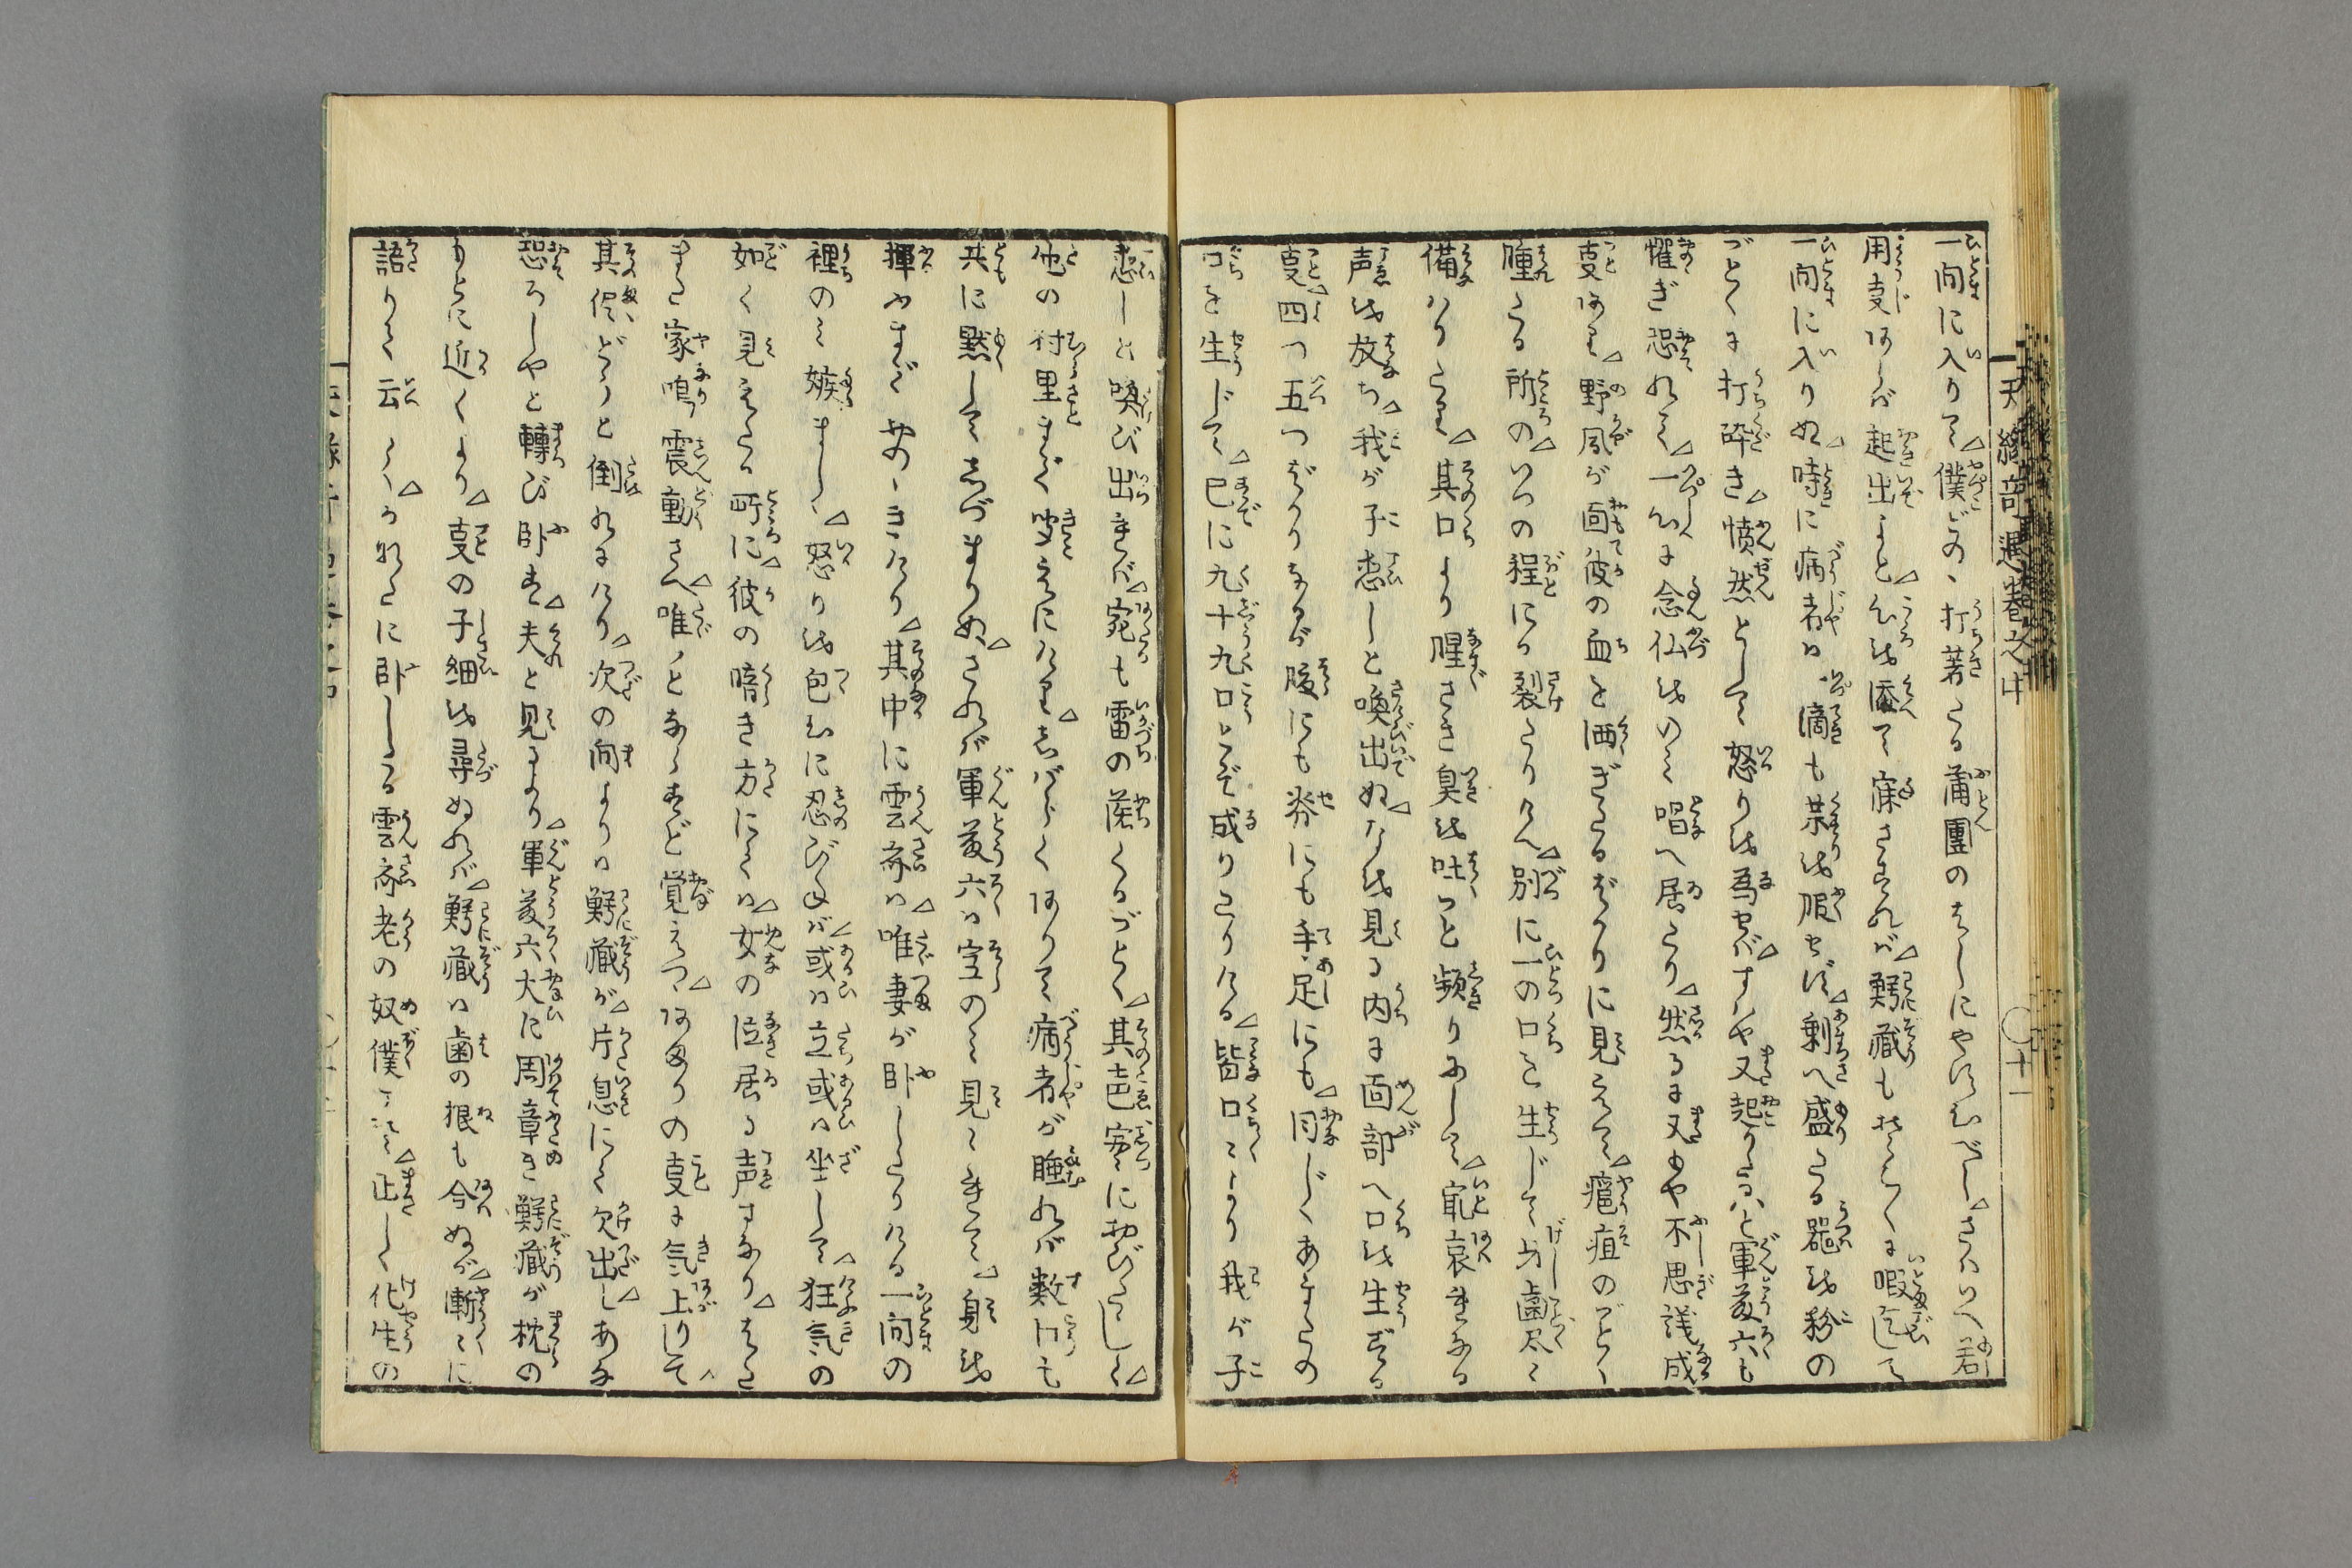 天縁奇遇巻之中　〇十一
一間に入りて△僕どの、打著たる蒲團のはしにやはむべし△さはいへ若
用叓あらば起出よと△心を添て寐さすれば△鰐蔵もそこ〳〵に暇乞して
一間に入りぬ△時に病者は一滴も薬を服せず△剰へ盛たる器を粉の
ごとくに打砕き△憤然として怒りを為せば△すはや又起りたりと軍藤六も
懼ぎ恐れて△一心に念仏をのみ唱へ居たり△然るに又もや不思議成
叓あり△野風が面彼の血を洒ぎたるばかりに見えて△瘡疽のごとく
腫たる所の△いつの程にか裂たりけん△別に一の口を生じて牙齒尽く
備はりたり△其口より腥さき臭を吐つと頻りにして△寂哀きなる
声を放ち△我が子恋しと喚出ぬ△なを見る内に面部へ口を生ずる
叓△四つ五つばかりなるが腹にも脊にも手足にも△同じくあまたの
口を生じて△已に九十九口とぞ成りたりける△皆口々より我が子
恋しと喚び出せば△宛も雷の落くるごとく△其声寥々におびたゝしく△
他の村里まで聞えにけり△しばらくありて病者が睡れば数口も
共に黙してしづまりぬ△されば軍藤六は空のみ見えきて△身を
揮ふまでおのゝきけり△其中に雲斎は△唯妻が卧したりける一間の
裡のみ嫉ましく△怒りを包むに忍びねば△或は立或は坐して△狂気の
如く見えたる所に△彼の暗き方にては△女の泣居る声すなり△また
また家鳴震動さへ△唯ことならずと覚えつ△あまりの叓に気上りして△
其侭どうと倒れにけり△次の間よりは鰐蔵が△片息にて欠出し△あな
恐ろしやと轉び卧す△夫と見るより△軍藤六大に周章き鰐蔵が枕の
もとに近くより△叓の子細を尋ぬれば△鰐蔵は歯の根も今ぬが△漸々に
語りて云く△われこに卧したる雲斎老の奴僕こそ△正しく化生の